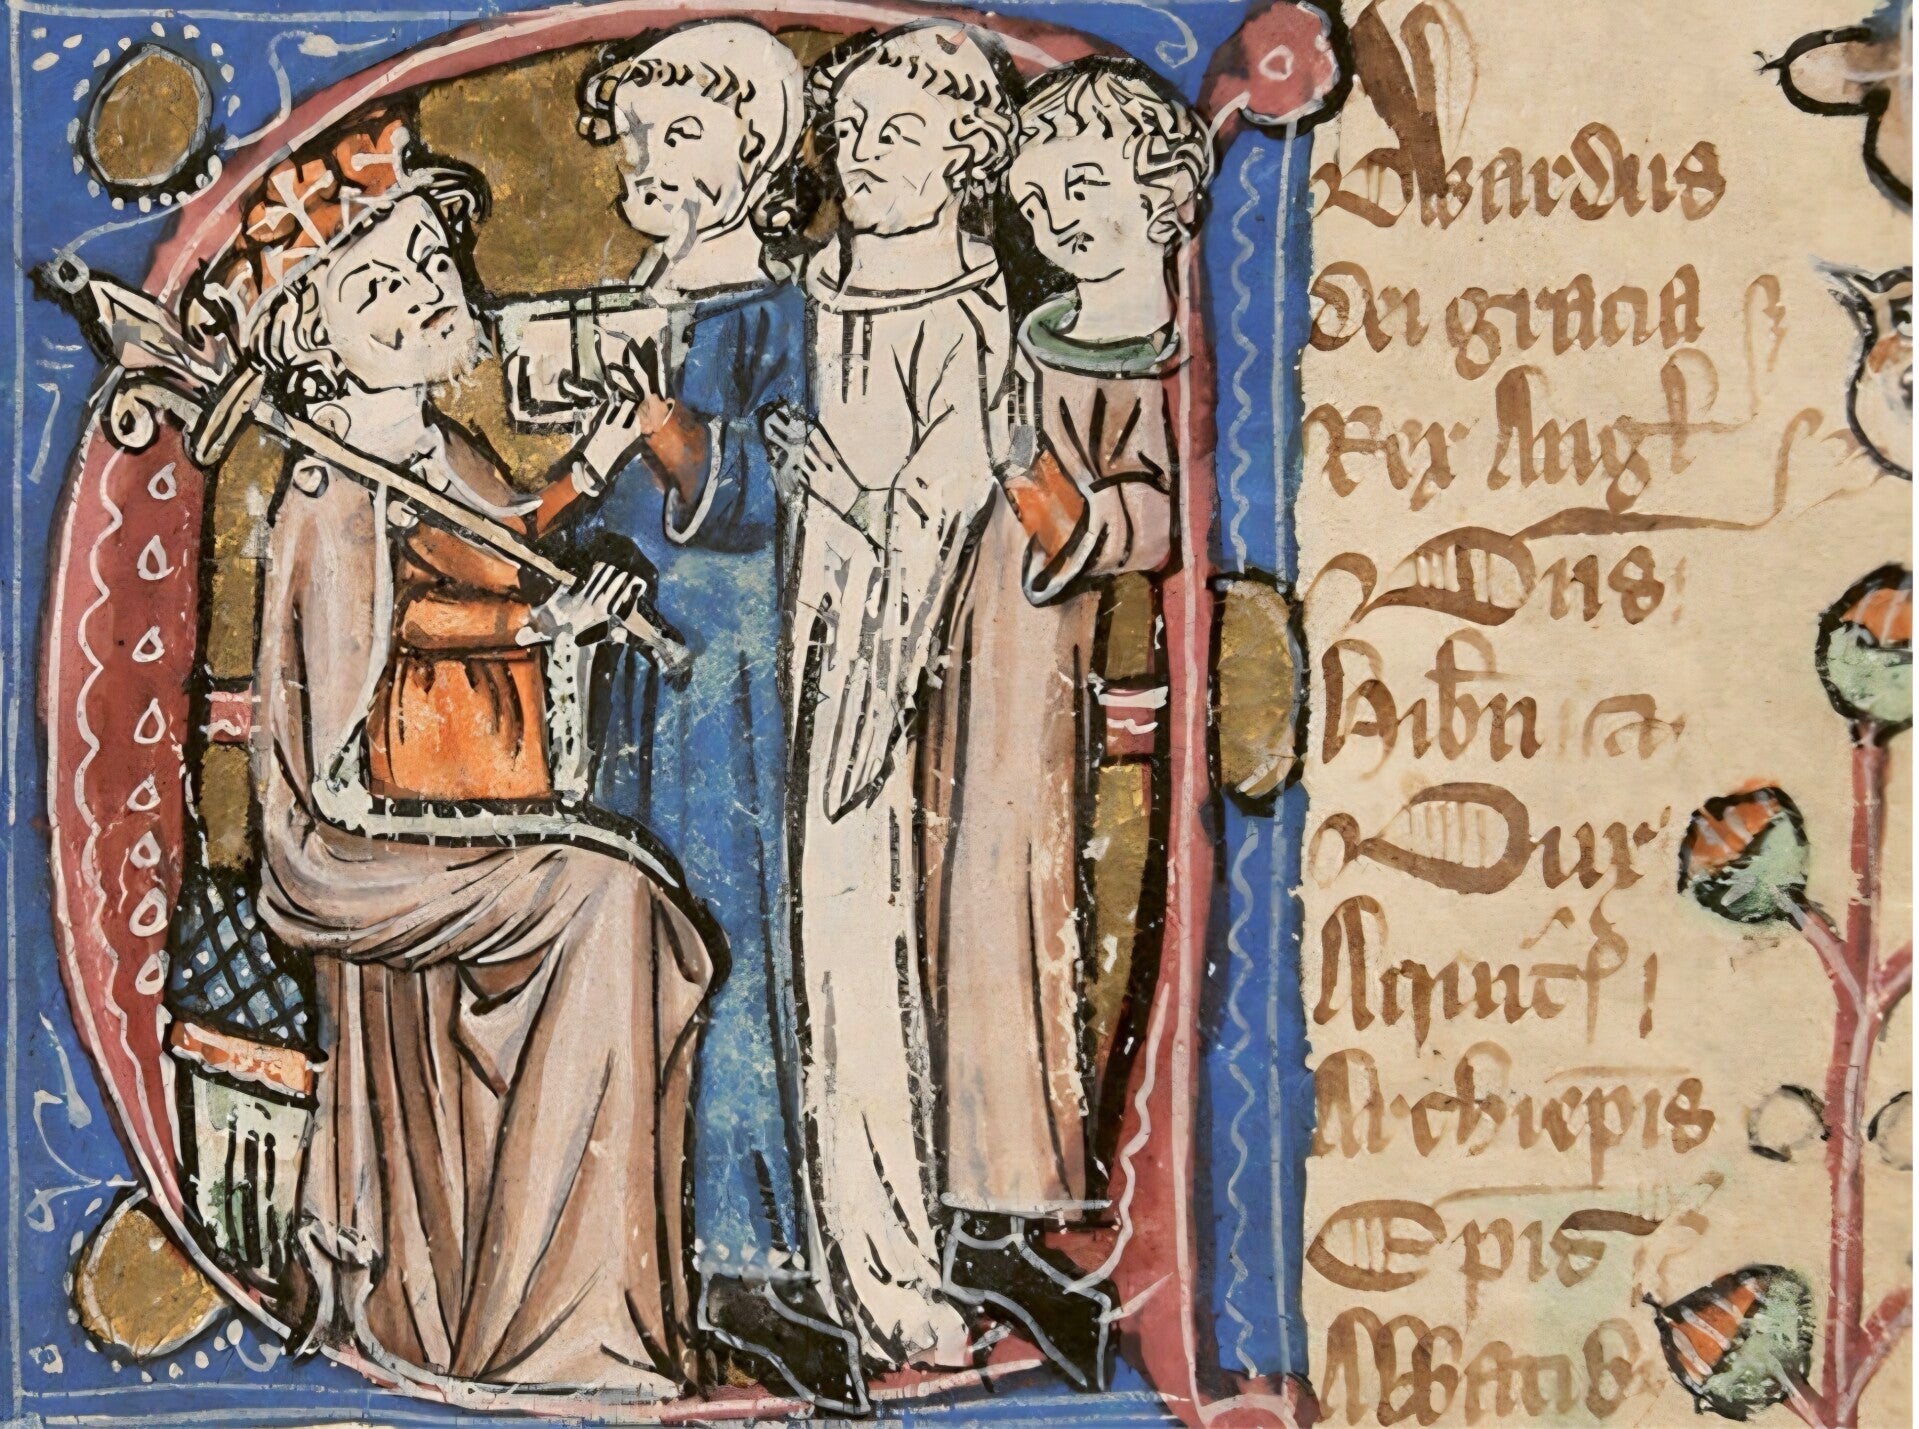 Dwardus
dei gracia
Rex Angl
Dns
Hibn ⁊ a
Dux
Aquit
Archiepis
Epis
Abbatib